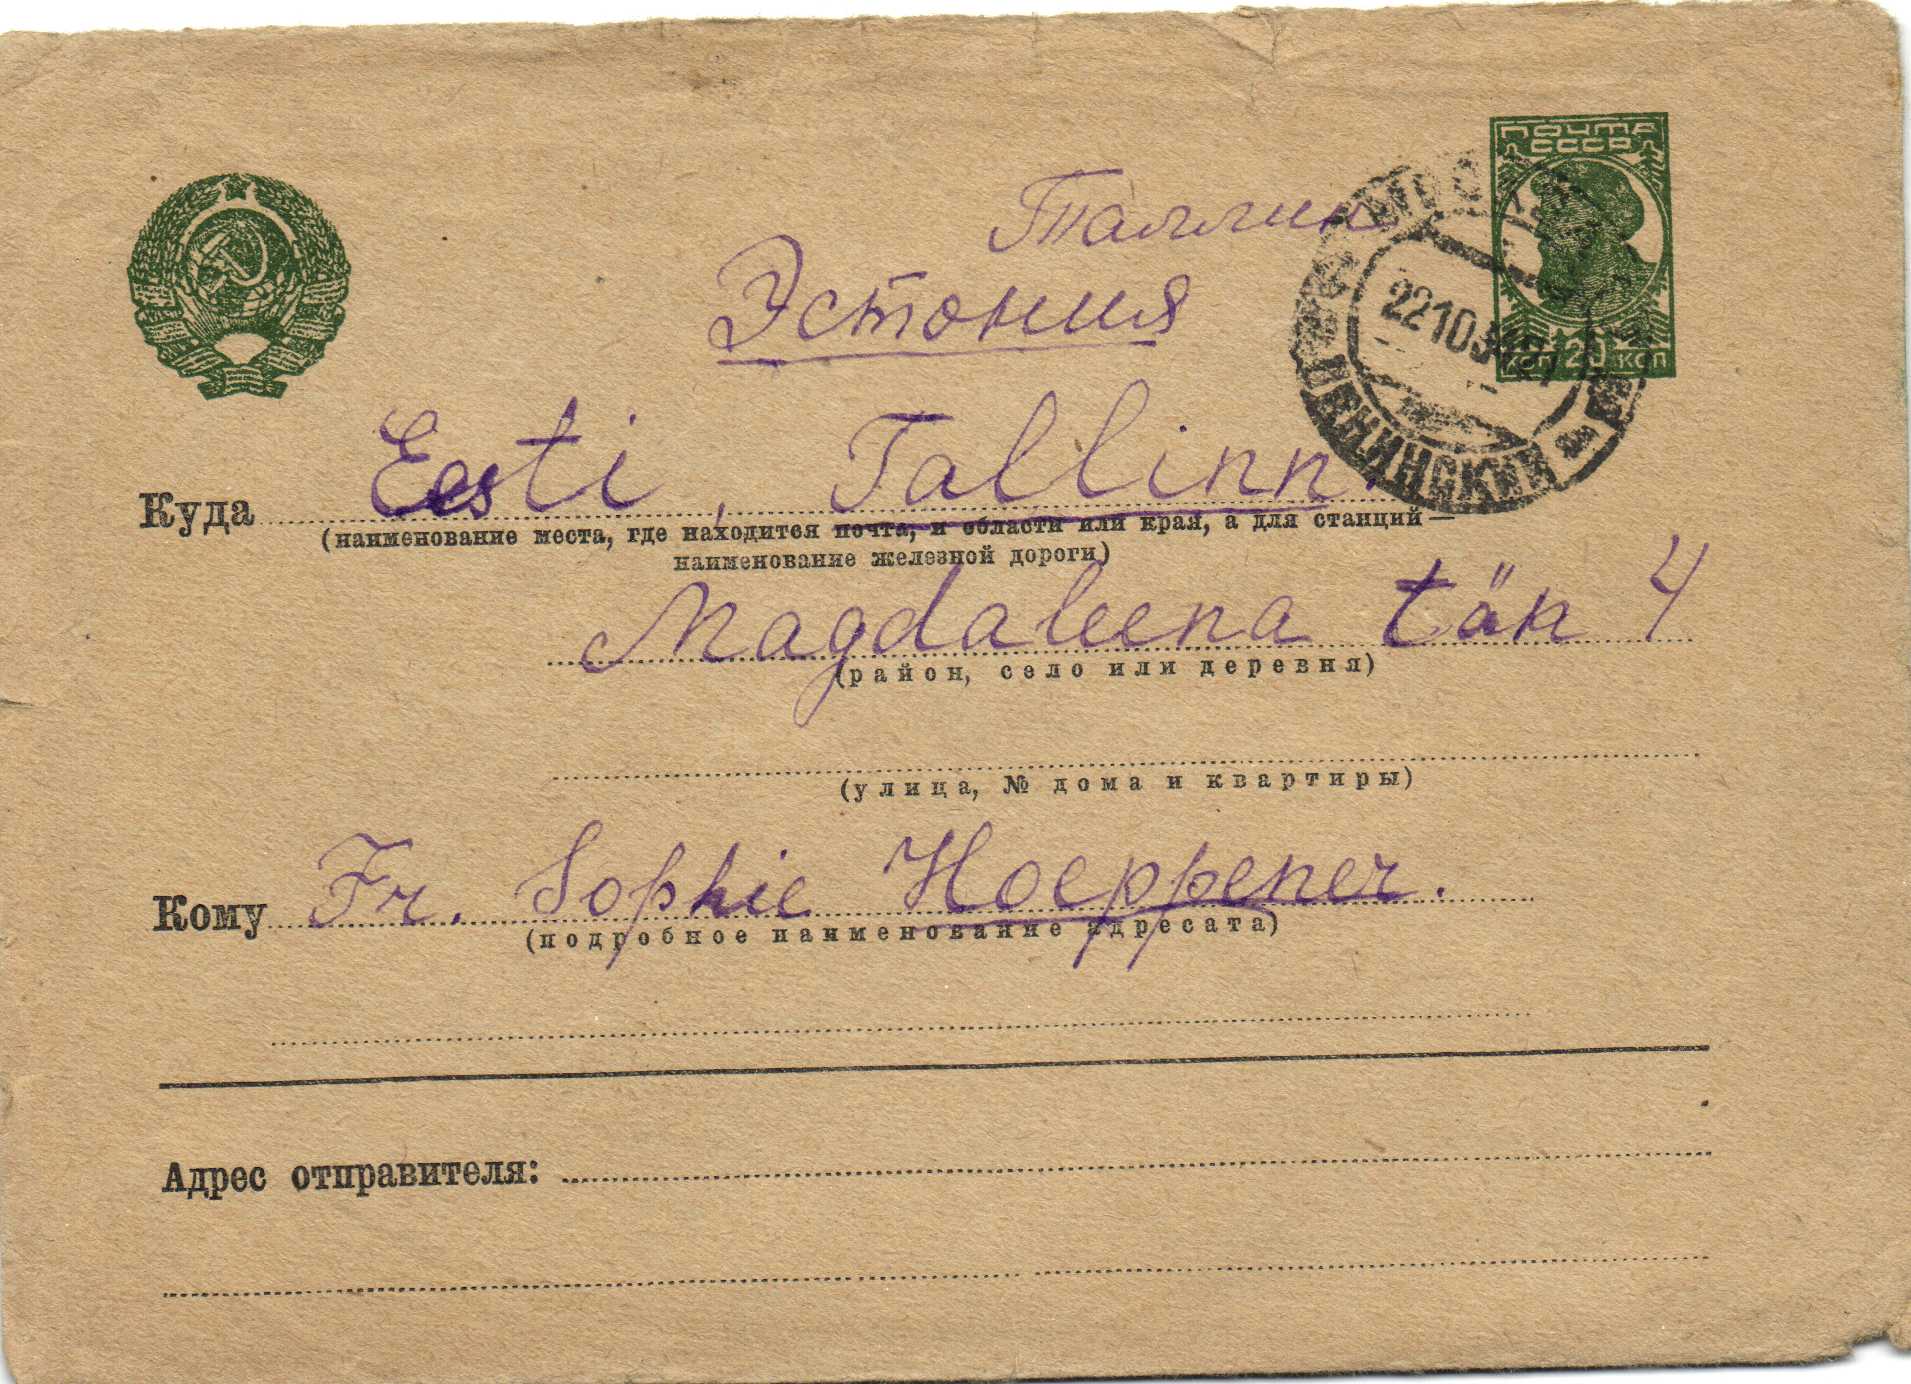 ПОЧТА
СССР
КОП 20 КОП
Таллин
Эстония
221034
ЛЕНИНСКИЙ
Куда Eesti, Tallinn.
(наименование места, где находится почта, и области или края, а для станций—
наименование железной дороги)
Magdaleena tän 4
(район, село или деревня)
(улица, № дома и квартиры)
Кому Fr. Sophie Hoeppener.
(подробное наименование адресата)
Адрес отправителя: